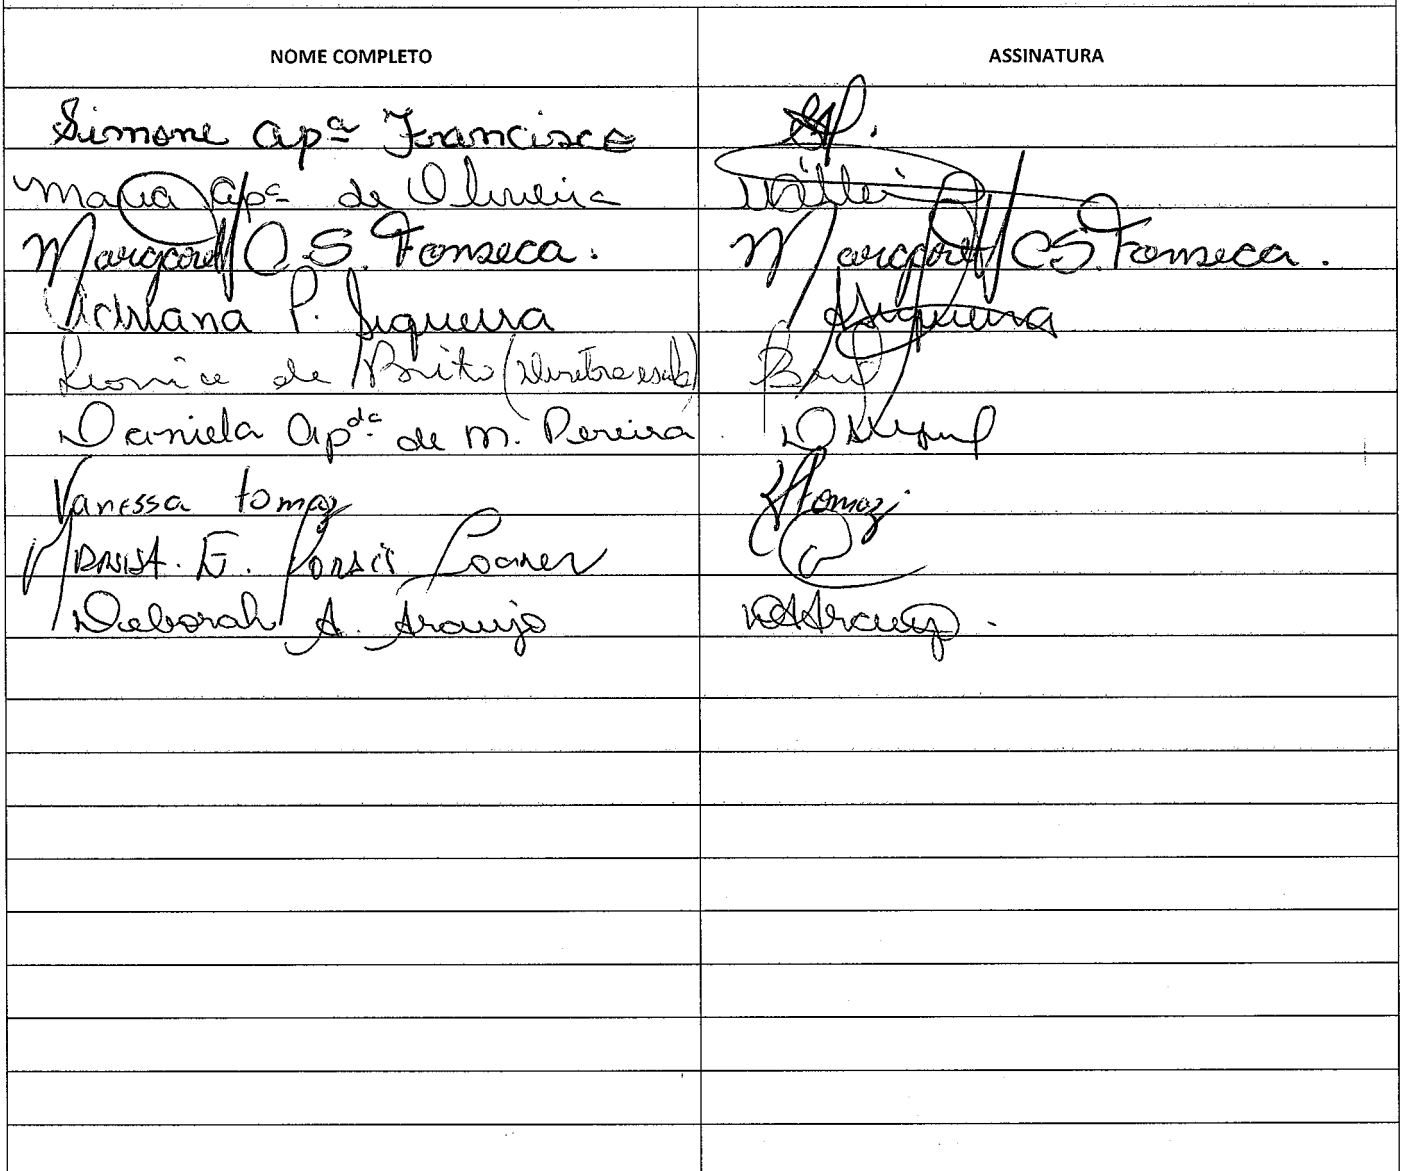 NOME COMPLETO ASSINATURA
Simone Apª Francisco
Maria Apª de Oliveira
Margareth C. S. Fonseca. Margareth C.S. Fonseca.
Adriana P. Siqueira ASiqueira
Leonice de Brito (Diretora escola)
Daniela Apdª de M. Pereira
Vanessa Tomaz VTomaz
E. Soares
Deborah A. Araujo DAAraujo.